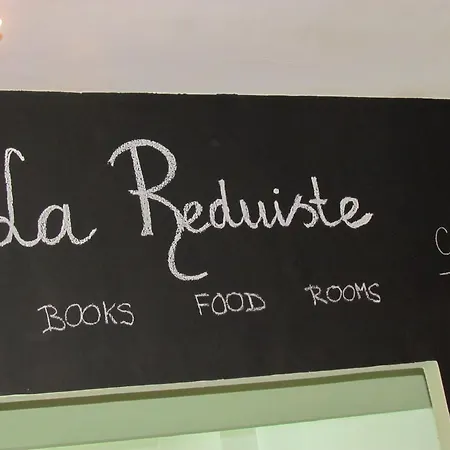 La Reduiste
BOOKS FOOD ROOMS